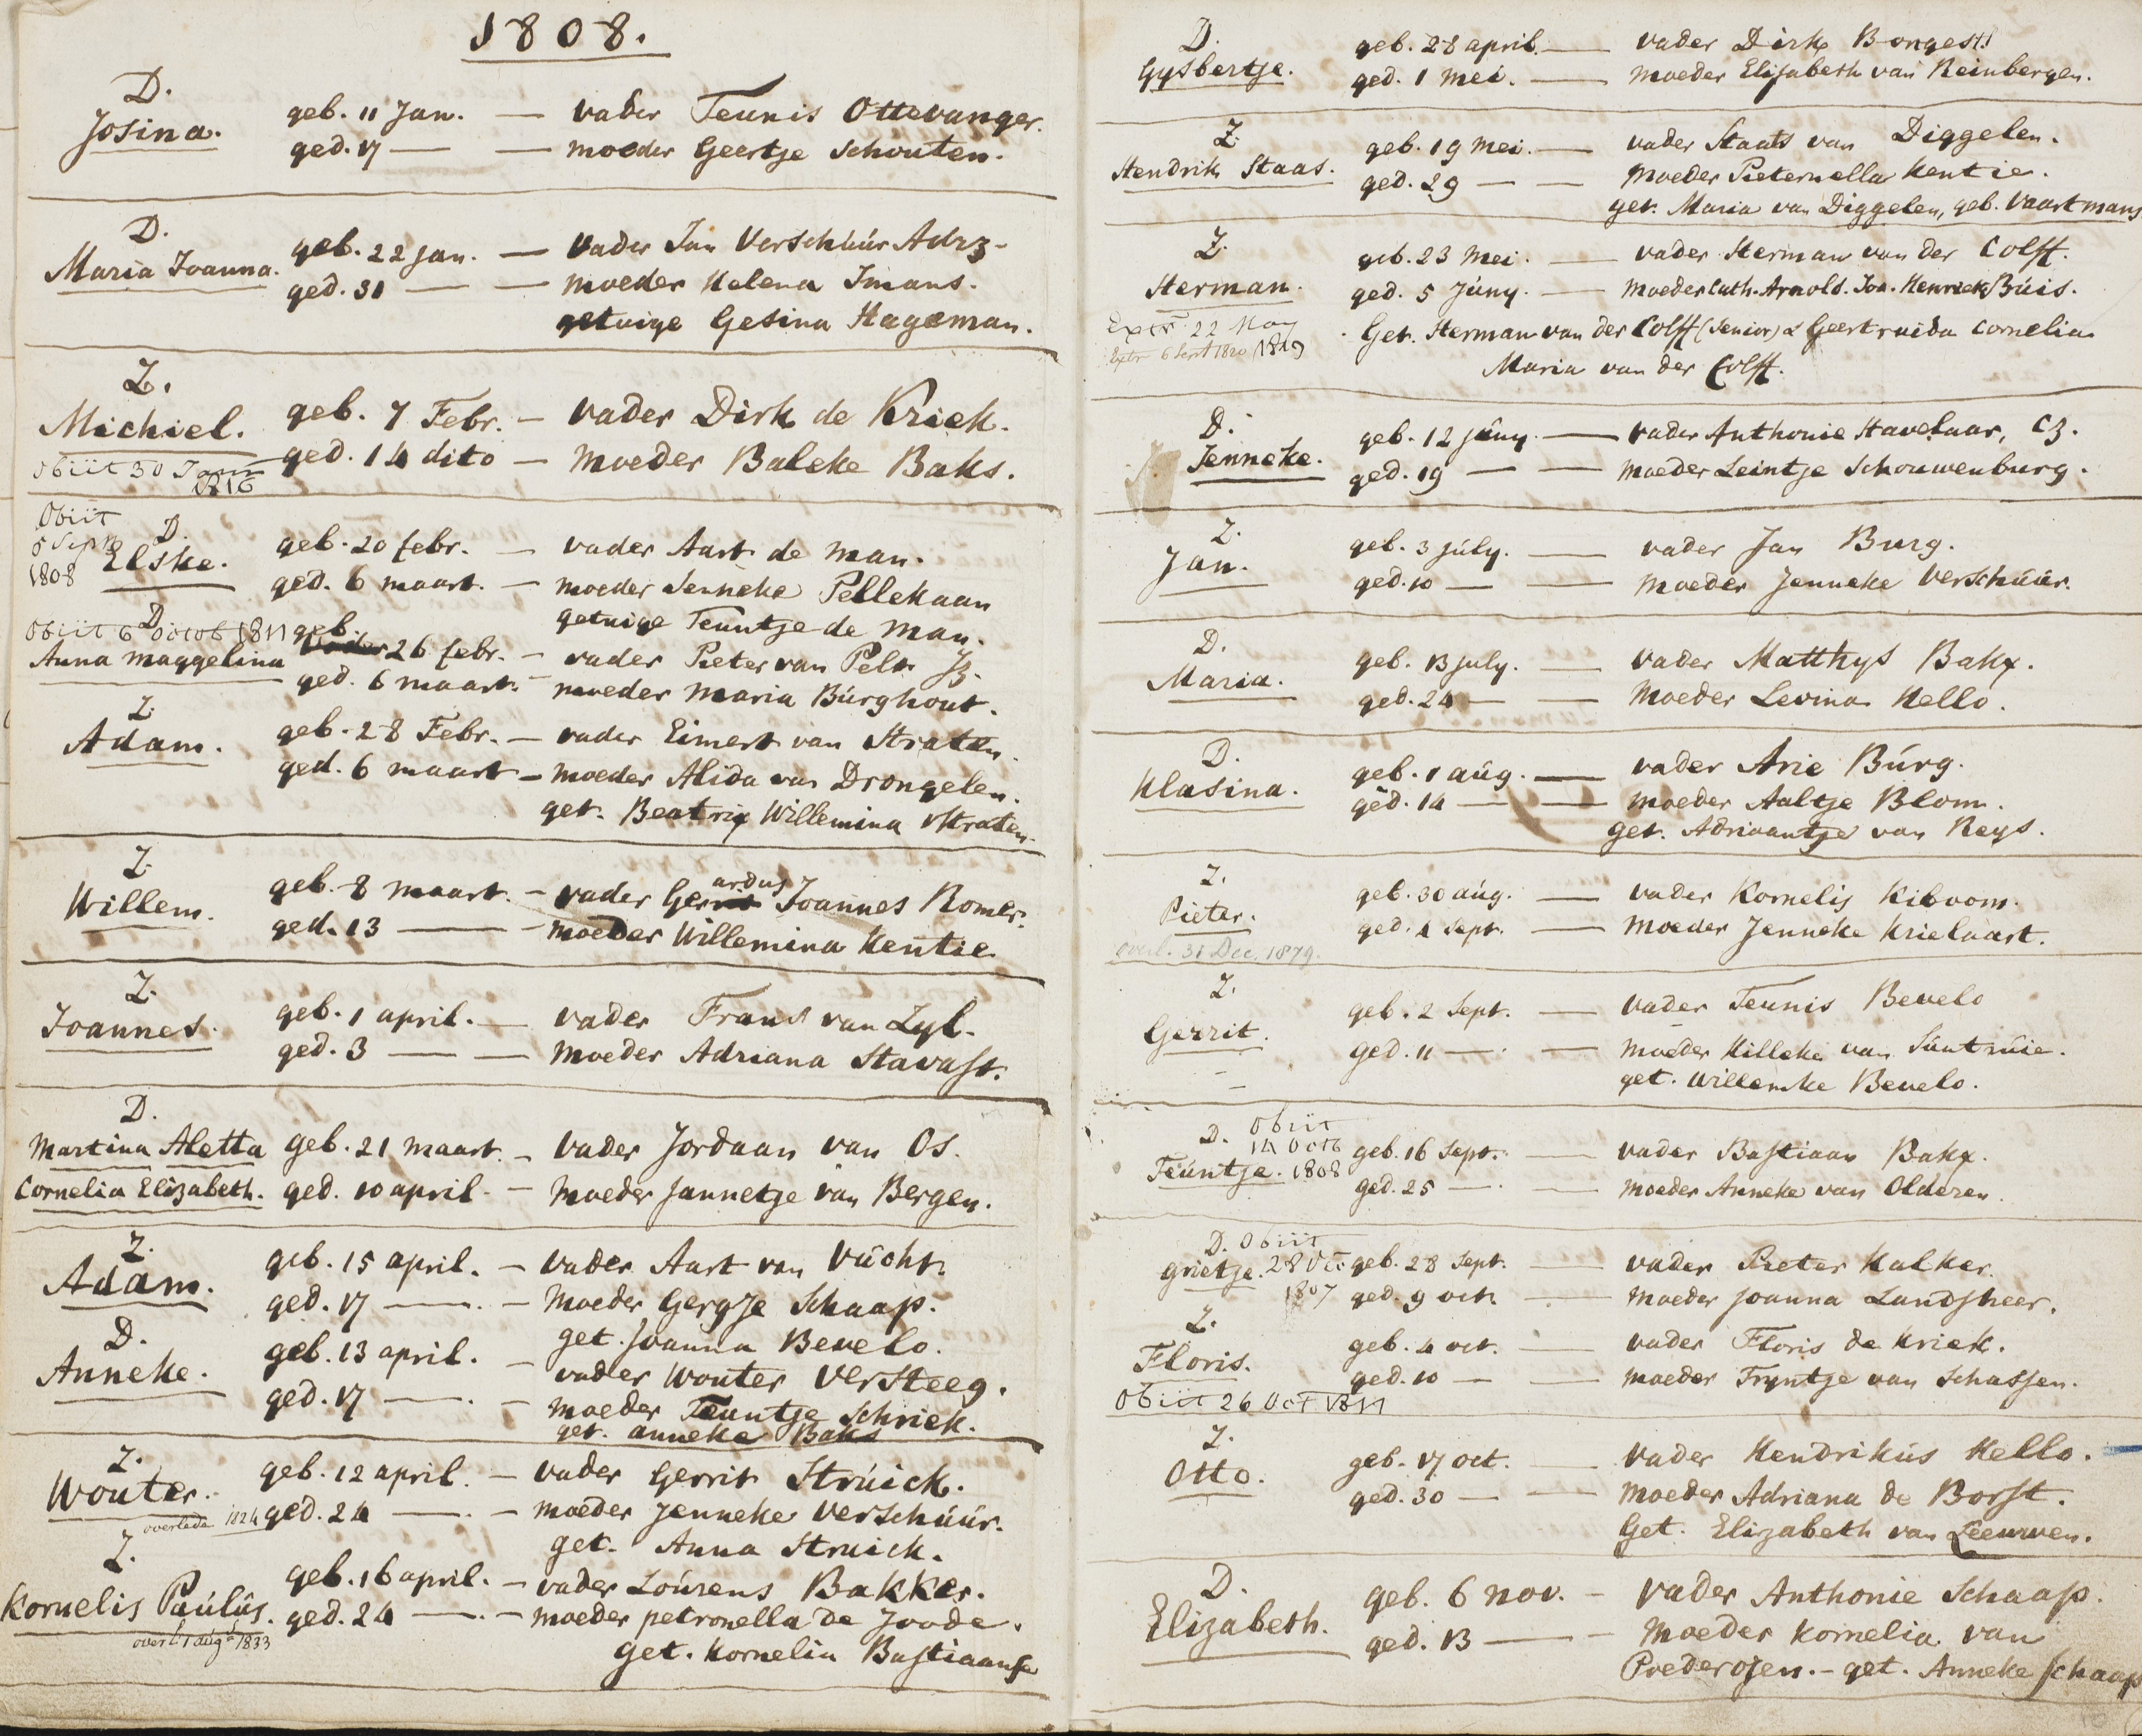 1808.
D.
Josina.
geb. 11 Jan. — vader Teunis Ottevanger.
ged. 17 — — moeder Geertje Schouten.
D.
Maria Joanna.
geb. 22 Jan. — vader Jan Verschúúr Adrz.
ged. 31 — — moeder Helena Imans.
getuige Gesina Hageman.
Z.
Michiel.
geb. 7 Febr. — vader Dirk de Kriek.
ged. 14 dito — moeder Baleke Baks.
obiit 30 Jan
1816
Obiit
5 Sept
1808
D.
Elske.
geb. 20 febr. — vader Aart de Man.
ged. 6 maart. — moeder Jenneke Pellekaan
getuige Teuntje de Man.
D
Obiit 6 Octob 1811
Anna Maggelina
geb. 26 febr. — vader Pieter van Pelt Jz.
ged. 6 maart. — moeder Maria Búrghout.
Z.
Adam.
geb. 28 Febr. — vader Eimert van Straten.
ged. 6 maart — moeder Alida van Drongelen.
get. Beatrix Willemina Straten.
Z.
Willem.
geb. 8 maart. — vader Gerardus Joannes Romer.
ged. 13 — — moeder Willemina Kentie.
Z.
Joannes.
geb. 1 april. — vader Frans van Zyl.
ged. 3 — — moeder Adriana Stavast.
D.
Martina Aletta
Cornelia Elizabeth.
geb. 21 maart. — vader Jordaan van Os.
ged. 10 april. — moeder Jannetje van Bergen.
Z.
Adam.
geb. 15 april. — vader Aart van Vúcht.
ged. 17 — — moeder Gergje Schaap.
get. Joanna Bevelo.
D.
Anneke.
geb. 13 april. — vader Wouter Versteeg.
ged. 17 — — moeder Teuntje Schriek.
get. anneke Baks
Z.
Wouter.
overlede 1824
geb. 12 april. — vader Gerrit Strúick.
ged. 24 — — moeder Jenneke Verschúúr.
get. Anna Struick.
Z.
Kornelis Paúlús.
overl. 1 aug 1833
geb. 16 april. — vader Loúrens Bakker.
ged. 24 — — moeder petronella de Joode.
get. Kornelia Bastiaanse
D.
Gysbertje.
geb. 28 april. — vader Dirk Bongest.
ged. 1 Mei. — moeder Elizabeth van Reinbergen.
Z.
Hendrik Staas.
geb. 19 Mei. — vader Staats van Diggelen.
ged. 29 — — moeder Pieternella Kentie.
get. Maria van Diggelen, geb. Vaartmans
Z.
Herman.
geb. 23 Mei. — vader Herman van der Colff.
ged. 5 Júny. — moeder Cath. Arnold. Joa. Henriek Búis.
Extr 22 May
1819
Extr 6 Sept 1820
Get. Herman van der Colff (Senior) & Geertruida Cornelia
Maria van der Colff.
D.
Jenneke.
geb. 12 júny. — vader Anthonie Havelaar, Cz.
ged. 19 — — moeder Leintje Schouwenburg.
Z.
Jan.
geb. 3 júly. — vader Jan Burg.
ged. 10 — — moeder Jenneke Verschúúr.
D.
Maria.
geb. 13 july. — vader Matthys Bakx.
ged. 24 — — moeder Levina Hello.
D.
Klasina.
geb. 1 aúg. — vader Arie Búrg.
ged. 14 — — moeder Aaltje Blom.
get. Adriaantje van Reys.
Z.
Pieter.
geb. 30 aúg. — vader Kornelis Kiboom.
ged. 4 Sept. — moeder Jenneke Krielaart.
overl. 31 Dec. 1879.
Z.
Gerrit.
geb. 2 Sept. — vader Teunis Bevelo
ged. 11 — — moeder Hilleke van Súntrúie.
get. Willemke Bevelo.
D.
Teúntje.
Obiit
14 Octb
1808
geb. 16 Sept. — vader Bastiaan Bakx.
ged. 25 — — moeder Anneke van Olderen.
D. Obiit
Grietje. 28
1807
geb. 28 Sept. — vader Pieter Kalker.
ged. 9 oct. — moeder Joanna Landsheer.
Z.
Floris.
geb. 4 oct. — vader Floris de Kriek.
ged. 10 — — moeder Tryntje van Schassen.
Obiit 26 Oct 1811
Z.
Otto.
geb. 17 oct. — vader Hendrikús Hello.
ged. 30 — — moeder Adriana de Borst.
Get. Elizabeth van Leeuwen.
D.
Elizabeth.
geb. 6 nov. — vader Anthonie Schaap.
ged. 13 — — moeder Kornelia van
Poederojen. — get. Anneke Schaap